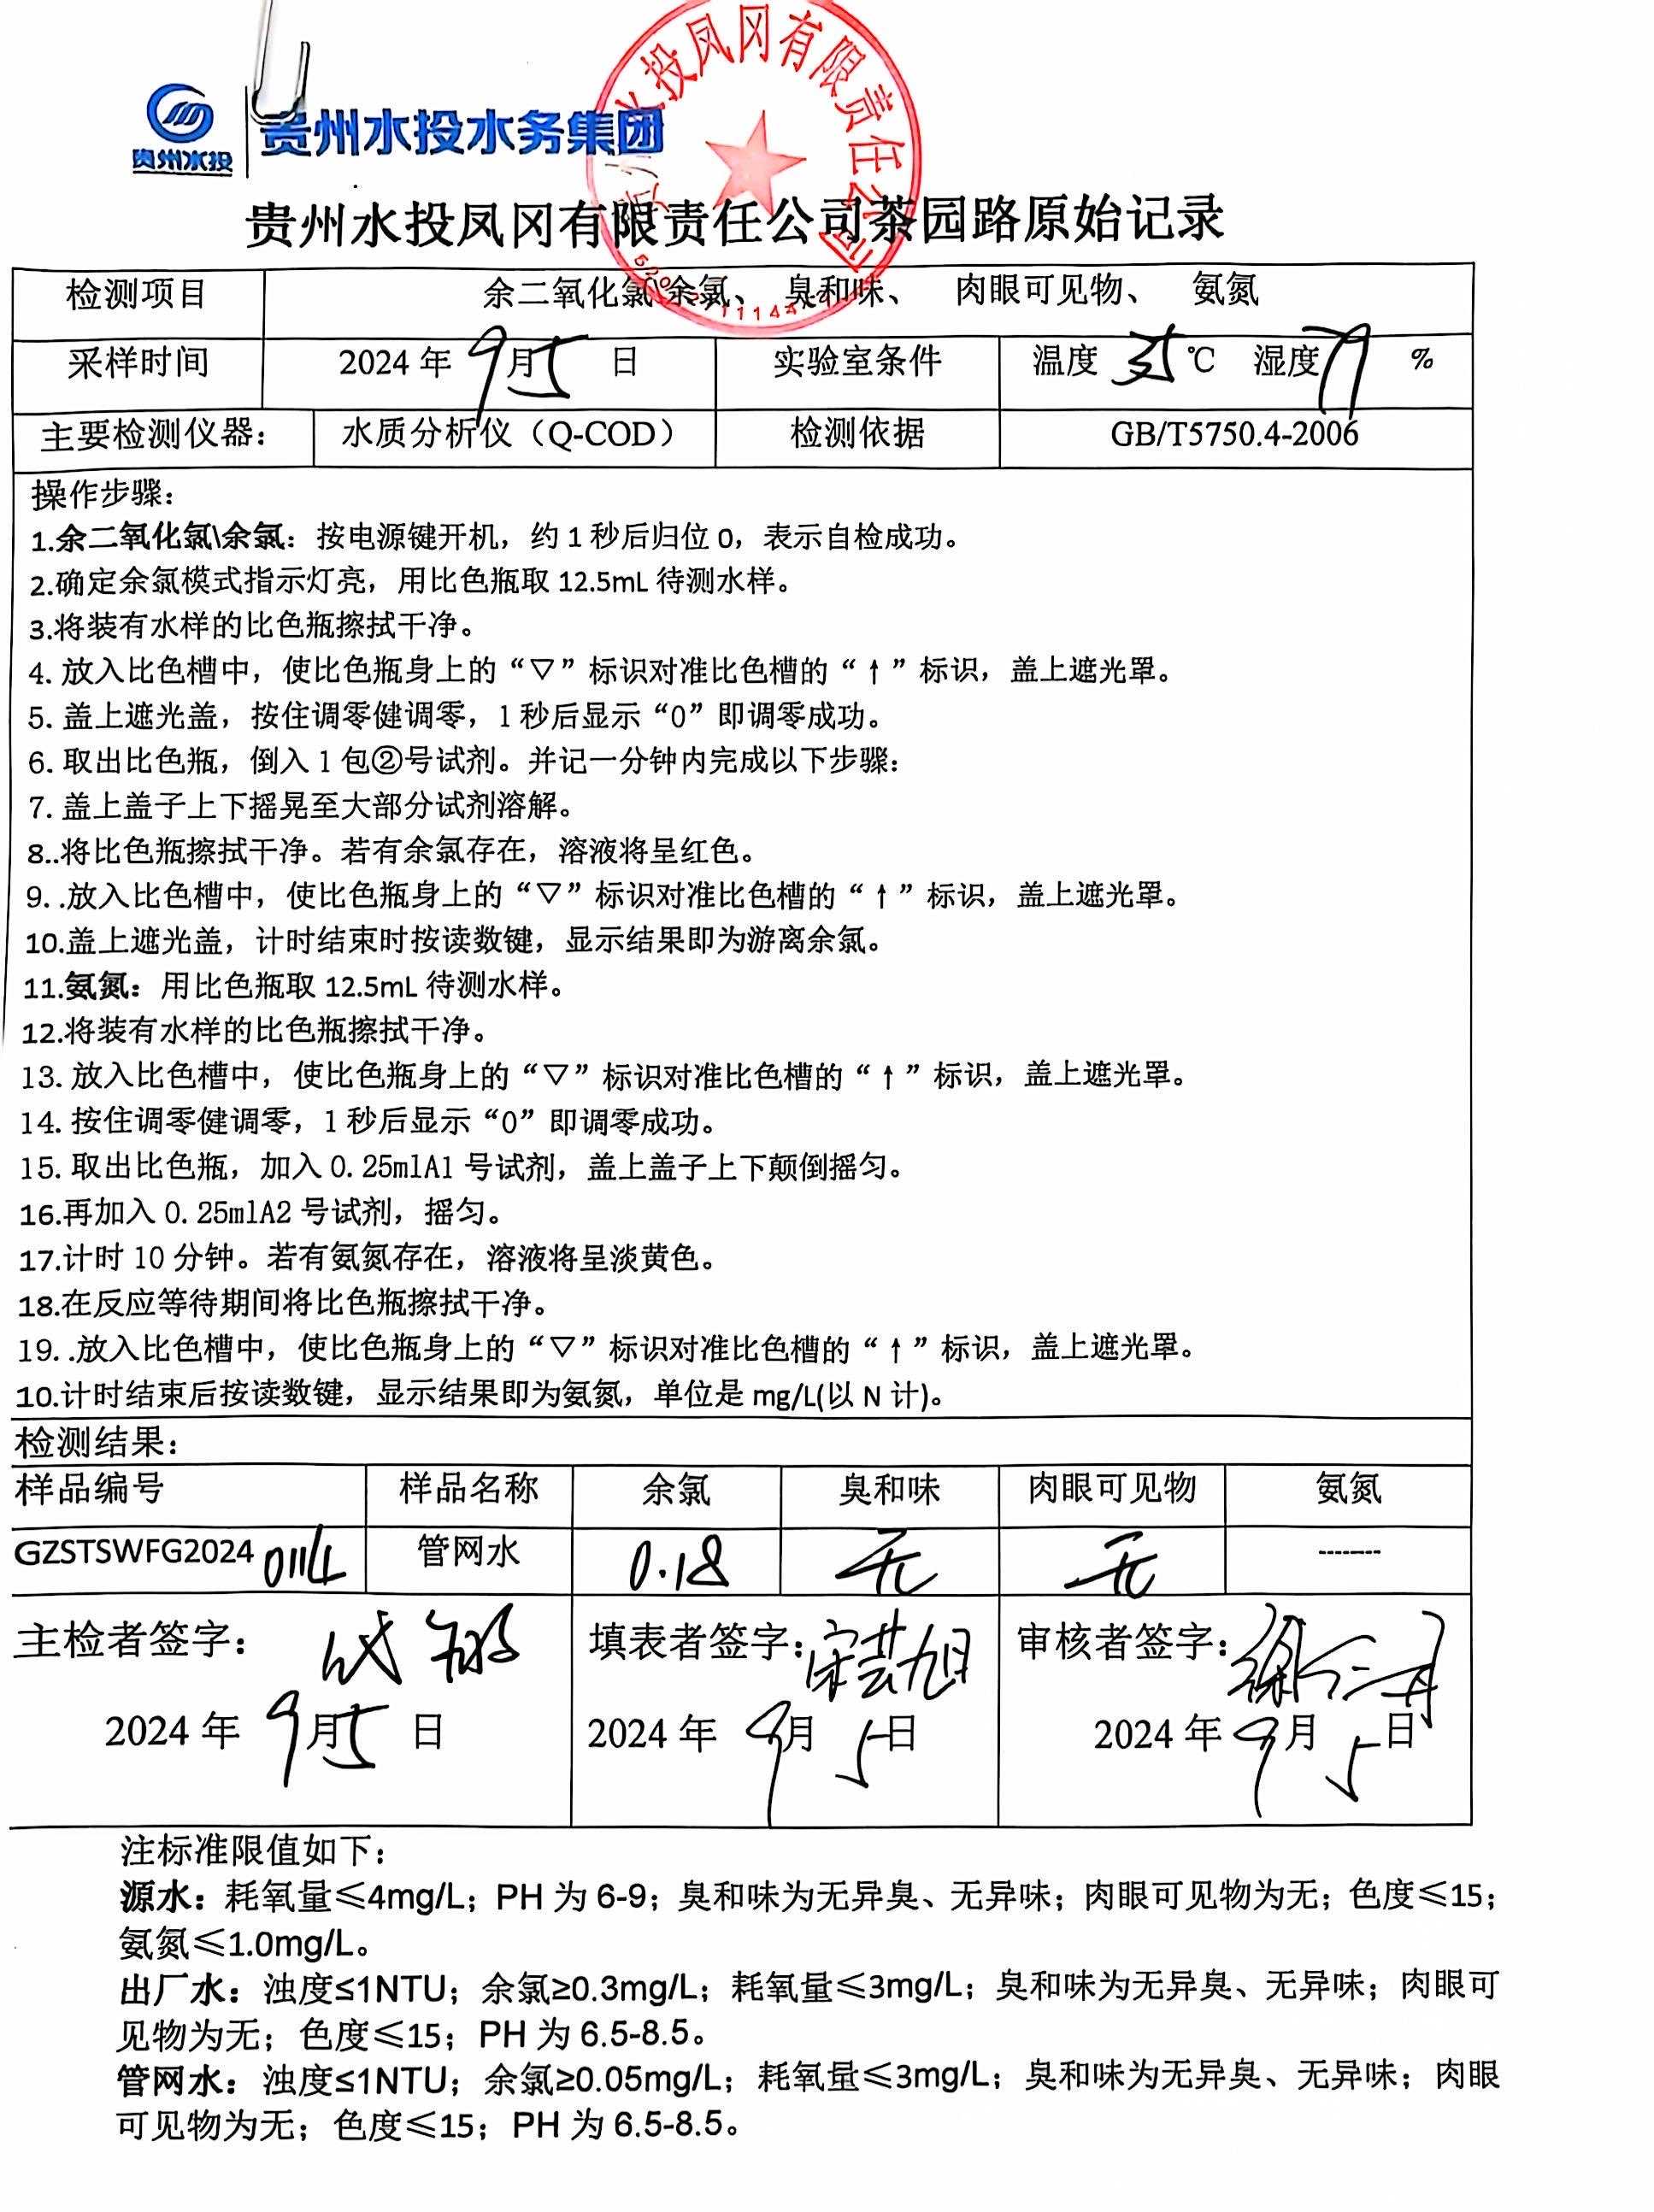 贵州水投 贵州水投水务集团
水投凤冈有限责任公司
贵州水投凤冈有限责任公司茶园路原始记录
检测项目 余二氧化氯余氯、 臭和味、 肉眼可见物、 氨氮
采样时间 2024 年 9 月 5 日 实验室条件 温度 ℃ 湿度 79 %
主要检测仪器： 水质分析仪（Q-COD） 检测依据 GB/T5750.4-2006
操作步骤：
1.余二氧化氯\余氯：按电源键开机，约 1 秒后归位 0，表示自检成功。
2.确定余氯模式指示灯亮，用比色瓶取 12.5mL 待测水样。
3.将装有水样的比色瓶擦拭干净。
4. 放入比色槽中，使比色瓶身上的“▽”标识对准比色槽的“↑”标识，盖上遮光罩。
5. 盖上遮光盖，按住调零健调零，1 秒后显示“0”即调零成功。
6. 取出比色瓶，倒入 1 包②号试剂。并记一分钟内完成以下步骤：
7. 盖上盖子上下摇晃至大部分试剂溶解。
8..将比色瓶擦拭干净。若有余氯存在，溶液将呈红色。
9. .放入比色槽中，使比色瓶身上的“▽”标识对准比色槽的“↑”标识，盖上遮光罩。
10.盖上遮光盖，计时结束时按读数键，显示结果即为游离余氯。
11.氨氮：用比色瓶取 12.5mL 待测水样。
12.将装有水样的比色瓶擦拭干净。
13. 放入比色槽中，使比色瓶身上的“▽”标识对准比色槽的“↑”标识，盖上遮光罩。
14. 按住调零健调零，1 秒后显示“0”即调零成功。
15. 取出比色瓶，加入 0.25mlA1 号试剂，盖上盖子上下颠倒摇匀。
16.再加入 0.25mlA2 号试剂，摇匀。
17.计时 10 分钟。若有氨氮存在，溶液将呈淡黄色。
18.在反应等待期间将比色瓶擦拭干净。
19. .放入比色槽中，使比色瓶身上的“▽”标识对准比色槽的“↑”标识，盖上遮光罩。
10.计时结束后按读数键，显示结果即为氨氮，单位是 mg/L(以 N 计)。
检测结果：
样品编号 样品名称 余氯 臭和味 肉眼可见物 氨氮
GZSTSWFG2024 0114 管网水 0.18 无 无 --------
主检者签字： 填表者签字： 宋芸旭 审核者签字：
2024 年 9 月 5 日 2024 年 9 月 5 日 2024 年 9 月 5 日
注标准限值如下：
源水：耗氧量≤4mg/L；PH 为 6-9；臭和味为无异臭、无异味；肉眼可见物为无；色度≤15；
氨氮≤1.0mg/L。
出厂水：浊度≤1NTU；余氯≥0.3mg/L；耗氧量≤3mg/L；臭和味为无异臭、无异味；肉眼可
见物为无；色度≤15；PH 为 6.5-8.5。
管网水：浊度≤1NTU；余氯≥0.05mg/L；耗氧量≤3mg/L；臭和味为无异臭、无异味；肉眼
可见物为无；色度≤15；PH 为 6.5-8.5。